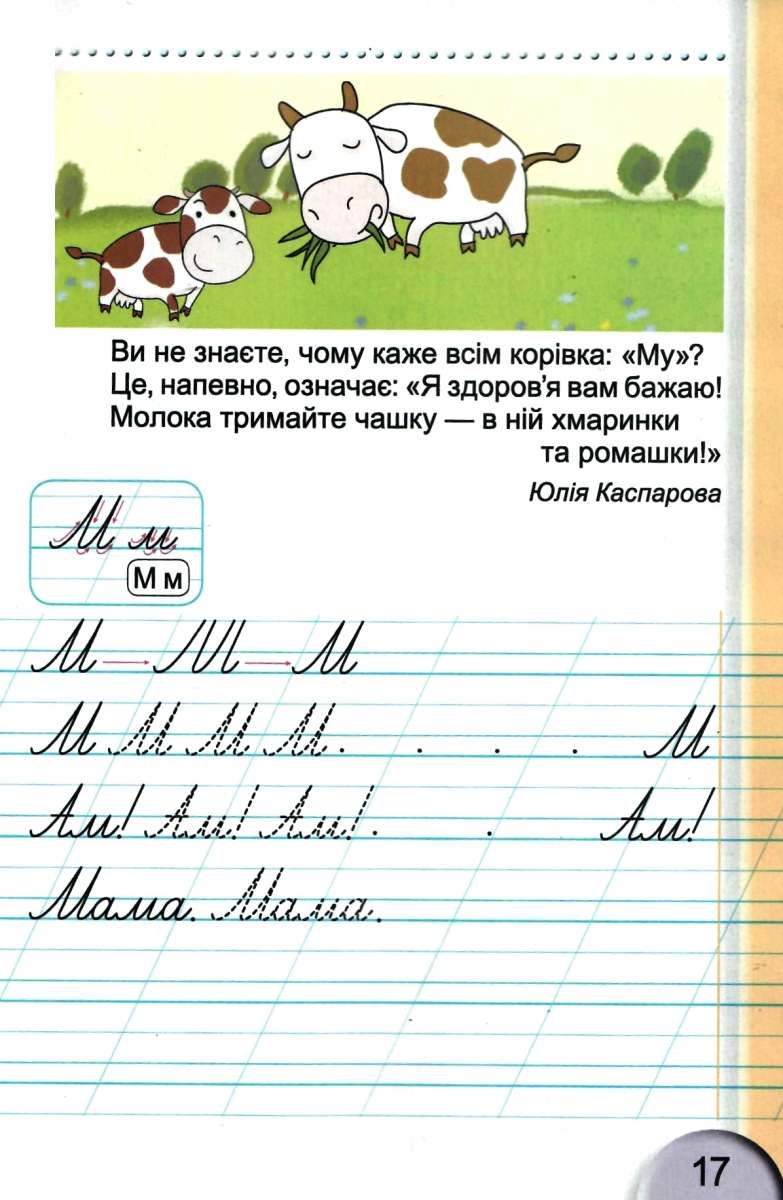 Ви не знаєте, чому каже всім корівка: «Му»?
Це, напевно, означає: «Я здоров'я вам бажаю!
Молока тримайте чашку — в ній хмаринки
та ромашки!»
Юлія Каспарова
М м
М м
М М М
М М М М . . . . М
Ам! Ам! Ам! . . Ам!
Мама. Мама.
17